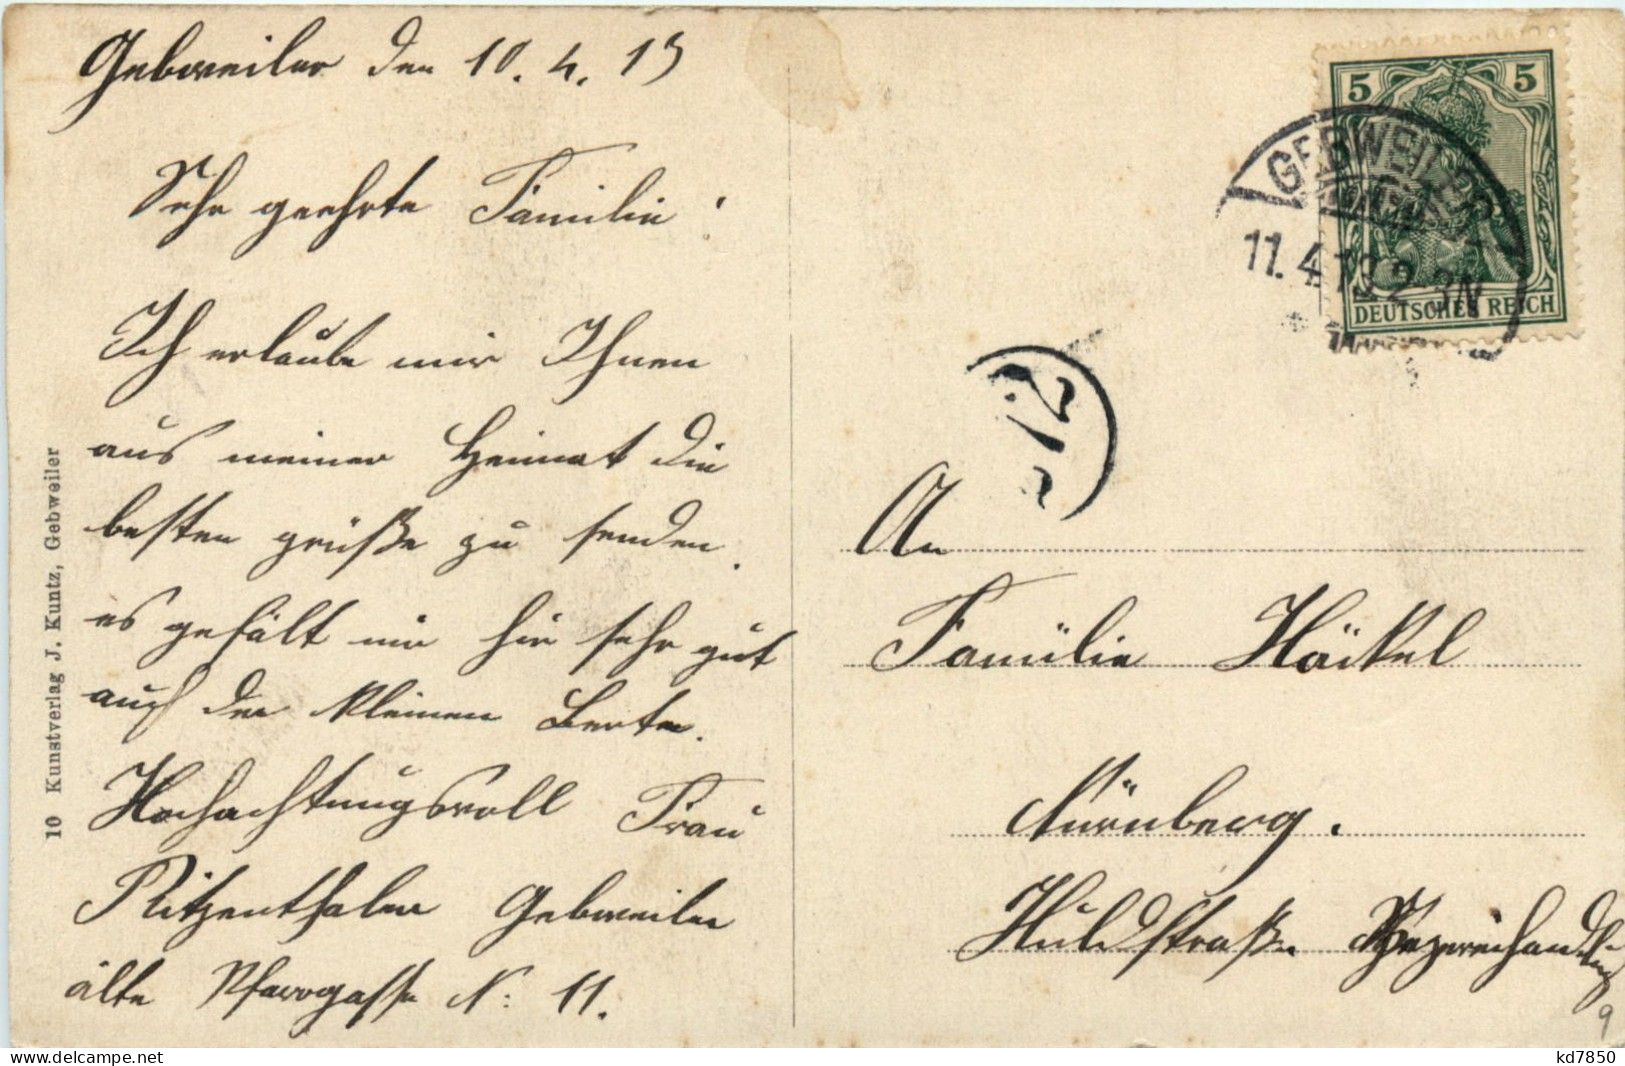 Gebweiler den 10. 4. 13
Sehr geehrte Familie!
Ich erlaube mir Ihnen
aus meiner Heimat die
besten grüße zu senden.
es gefält mir hir sehr gut
auch der kleinen Berta.
Hochachtungsvoll Frau
Ritzenthaler Gebweiler
alte Pfarrgasse N: 11.
10 Kunstverlag J. Kuntz, Gebweiler
5 5
DEUTSCHES REICH
GEBWEILER
11.4.13 2-3N
An
Familie Häckel
Nürnberg.
Huldstraße Spezereihandlung
9
kd7850